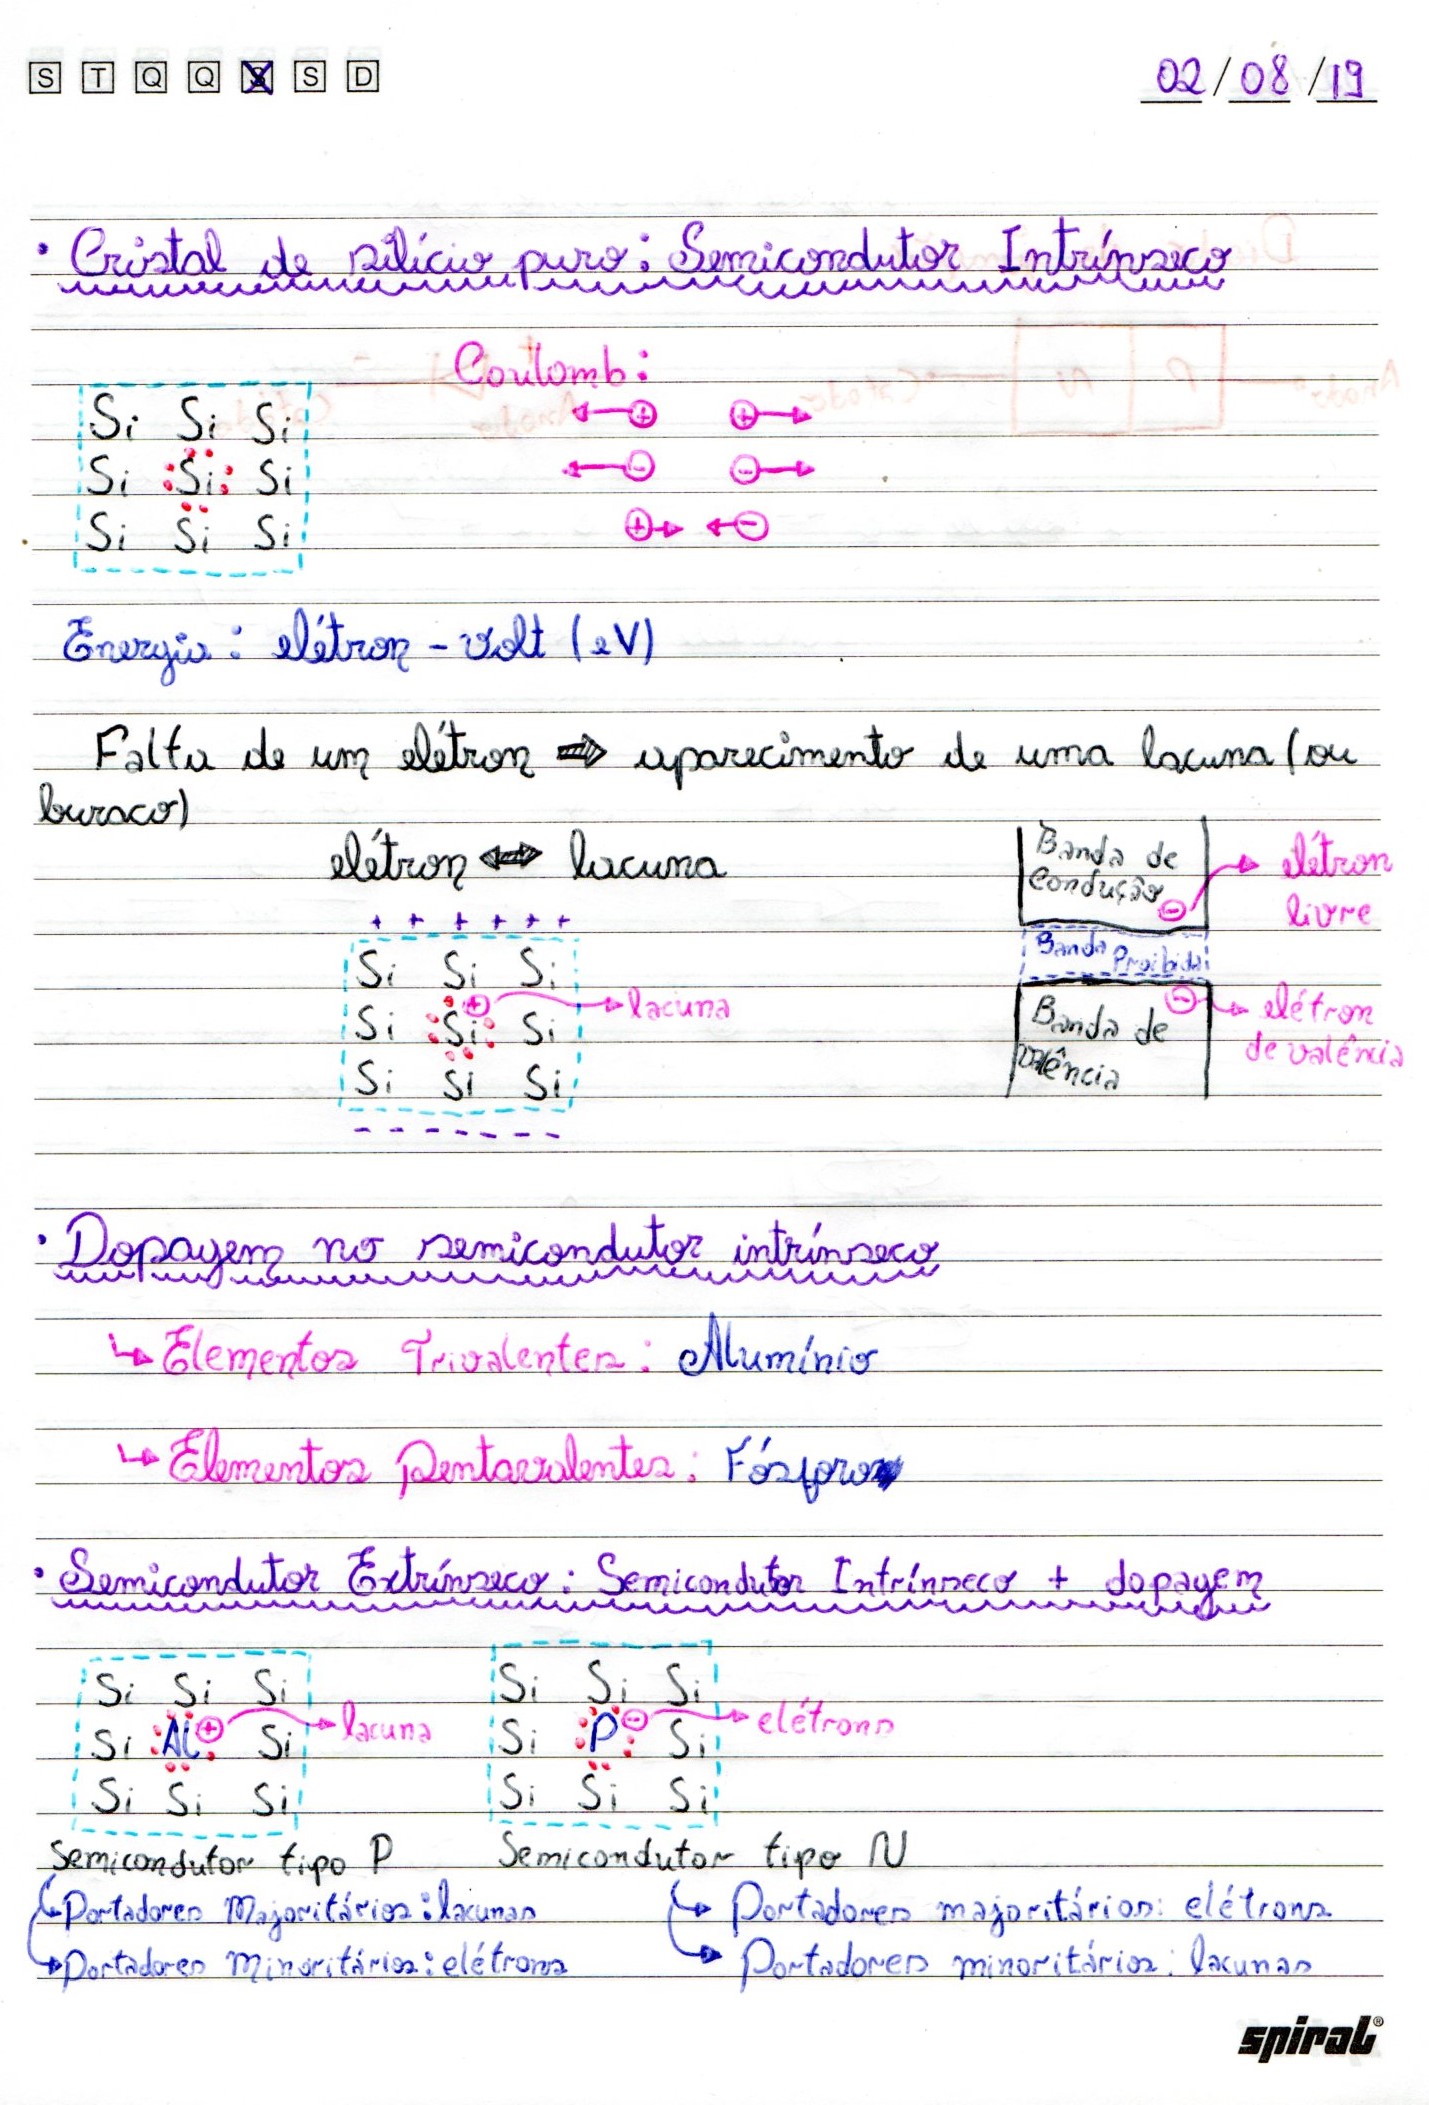 S T Q Q S S D 02/08/19
• Cristal de silício puro: Semicondutor Intrínseco
Coulomb:
Si Si Si ⊕ ⊕
Si Si Si ⊖ ⊖
Si Si Si ⊕ ⊖
Energia: elétron-volt (eV)
Falta de um elétron ⇒ aparecimento de uma lacuna (ou
buraco)
elétron ⇔ lacuna
+ + + + + +
Si Si Si
⊕ → lacuna
Si Si Si
Si Si Si
- - - - - - -
Banda de
condução
⊖ → elétron
livre
Banda Proibida
⊖ → elétron
de valência
Banda de
valência
• Dopagem no semicondutor intrínseco
↳ Elementos Trivalentes: Alumínio
↳ Elementos Pentavalentes: Fósforo
• Semicondutor Extrínseco: Semicondutor Intrínseco + dopagem
Si Si Si
Si Al ⊕ Si → lacuna
Si Si Si
Semicondutor tipo P
↳ Portadores Majoritários: lacunas
↳ Portadores Minoritários: elétrons
Si Si Si
Si P ⊖ Si → elétrons
Si Si Si
Semicondutor tipo N
↳ Portadores majoritários: elétrons
↳ Portadores minoritários: lacunas
spiral®